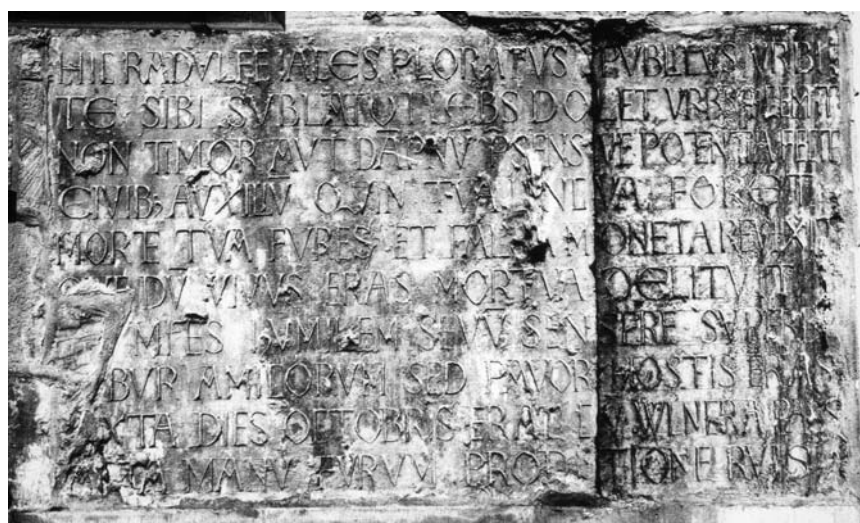 HIC RADVLFE IACES PLORATVS PVBLICVS VRBI
TE SIBI SVBLATŪ PLEBS DOLET VRBS GEMIT
NON TIMOR AVT DAPNŪ P̄SENS VE POTENTIA FECIT
CIVIB; AVXILIŪ QVIN TVA FORET
MORTE TVA PVBES ET FALSA MONETA REVIXIT
DŪ VIVVS ERAS MORTVA DELITVIT
MITES HVMILEM SEVV̄ SENSERE SVPERBI
AMICORVM SED PAVOR HOSTIS ERAS
XTA DIES OCTOBRIS ERAT CV̄ VVLNERA
MANV FVRVM PRODITIONE RVIS